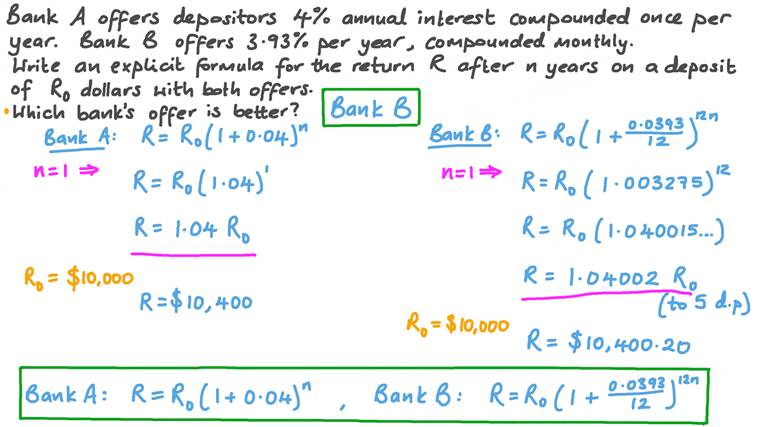 Bank A offers depositors 4% annual interest compounded once per
year. Bank B offers 3.93% per year, compounded monthly.
Write an explicit formula for the return R after n years on a deposit
of R₀ dollars with both offers.
• Which bank's offer is better? Bank B
Bank A: R = R₀(1 + 0.04)ⁿ
n = 1 ⇒
R = R₀(1.04)¹
R = 1.04 R₀
R₀ = $10,000
R = $10,400
Bank B: R = R₀(1 + 0.0393/12)¹²ⁿ
n = 1 ⇒ R = R₀(1.003275)¹²
R = R₀(1.040015...)
R = 1.04002 R₀
(to 5 d.p)
R₀ = $10,000
R = $10,400.20
Bank A: R = R₀(1 + 0.04)ⁿ , Bank B: R = R₀(1 + 0.0393/12)¹²ⁿ